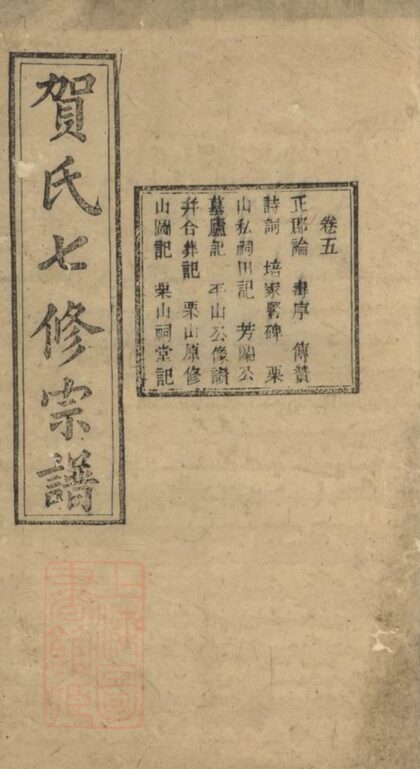 賀氏七修宗譜
卷五
論 壽序 傳贊
詩詞 碑 栗
山私祠田記 芳公
墓廬記 平山公像讚
并合葬記 栗山原修
山圖記 栗山祠堂記
上海圖
書館藏